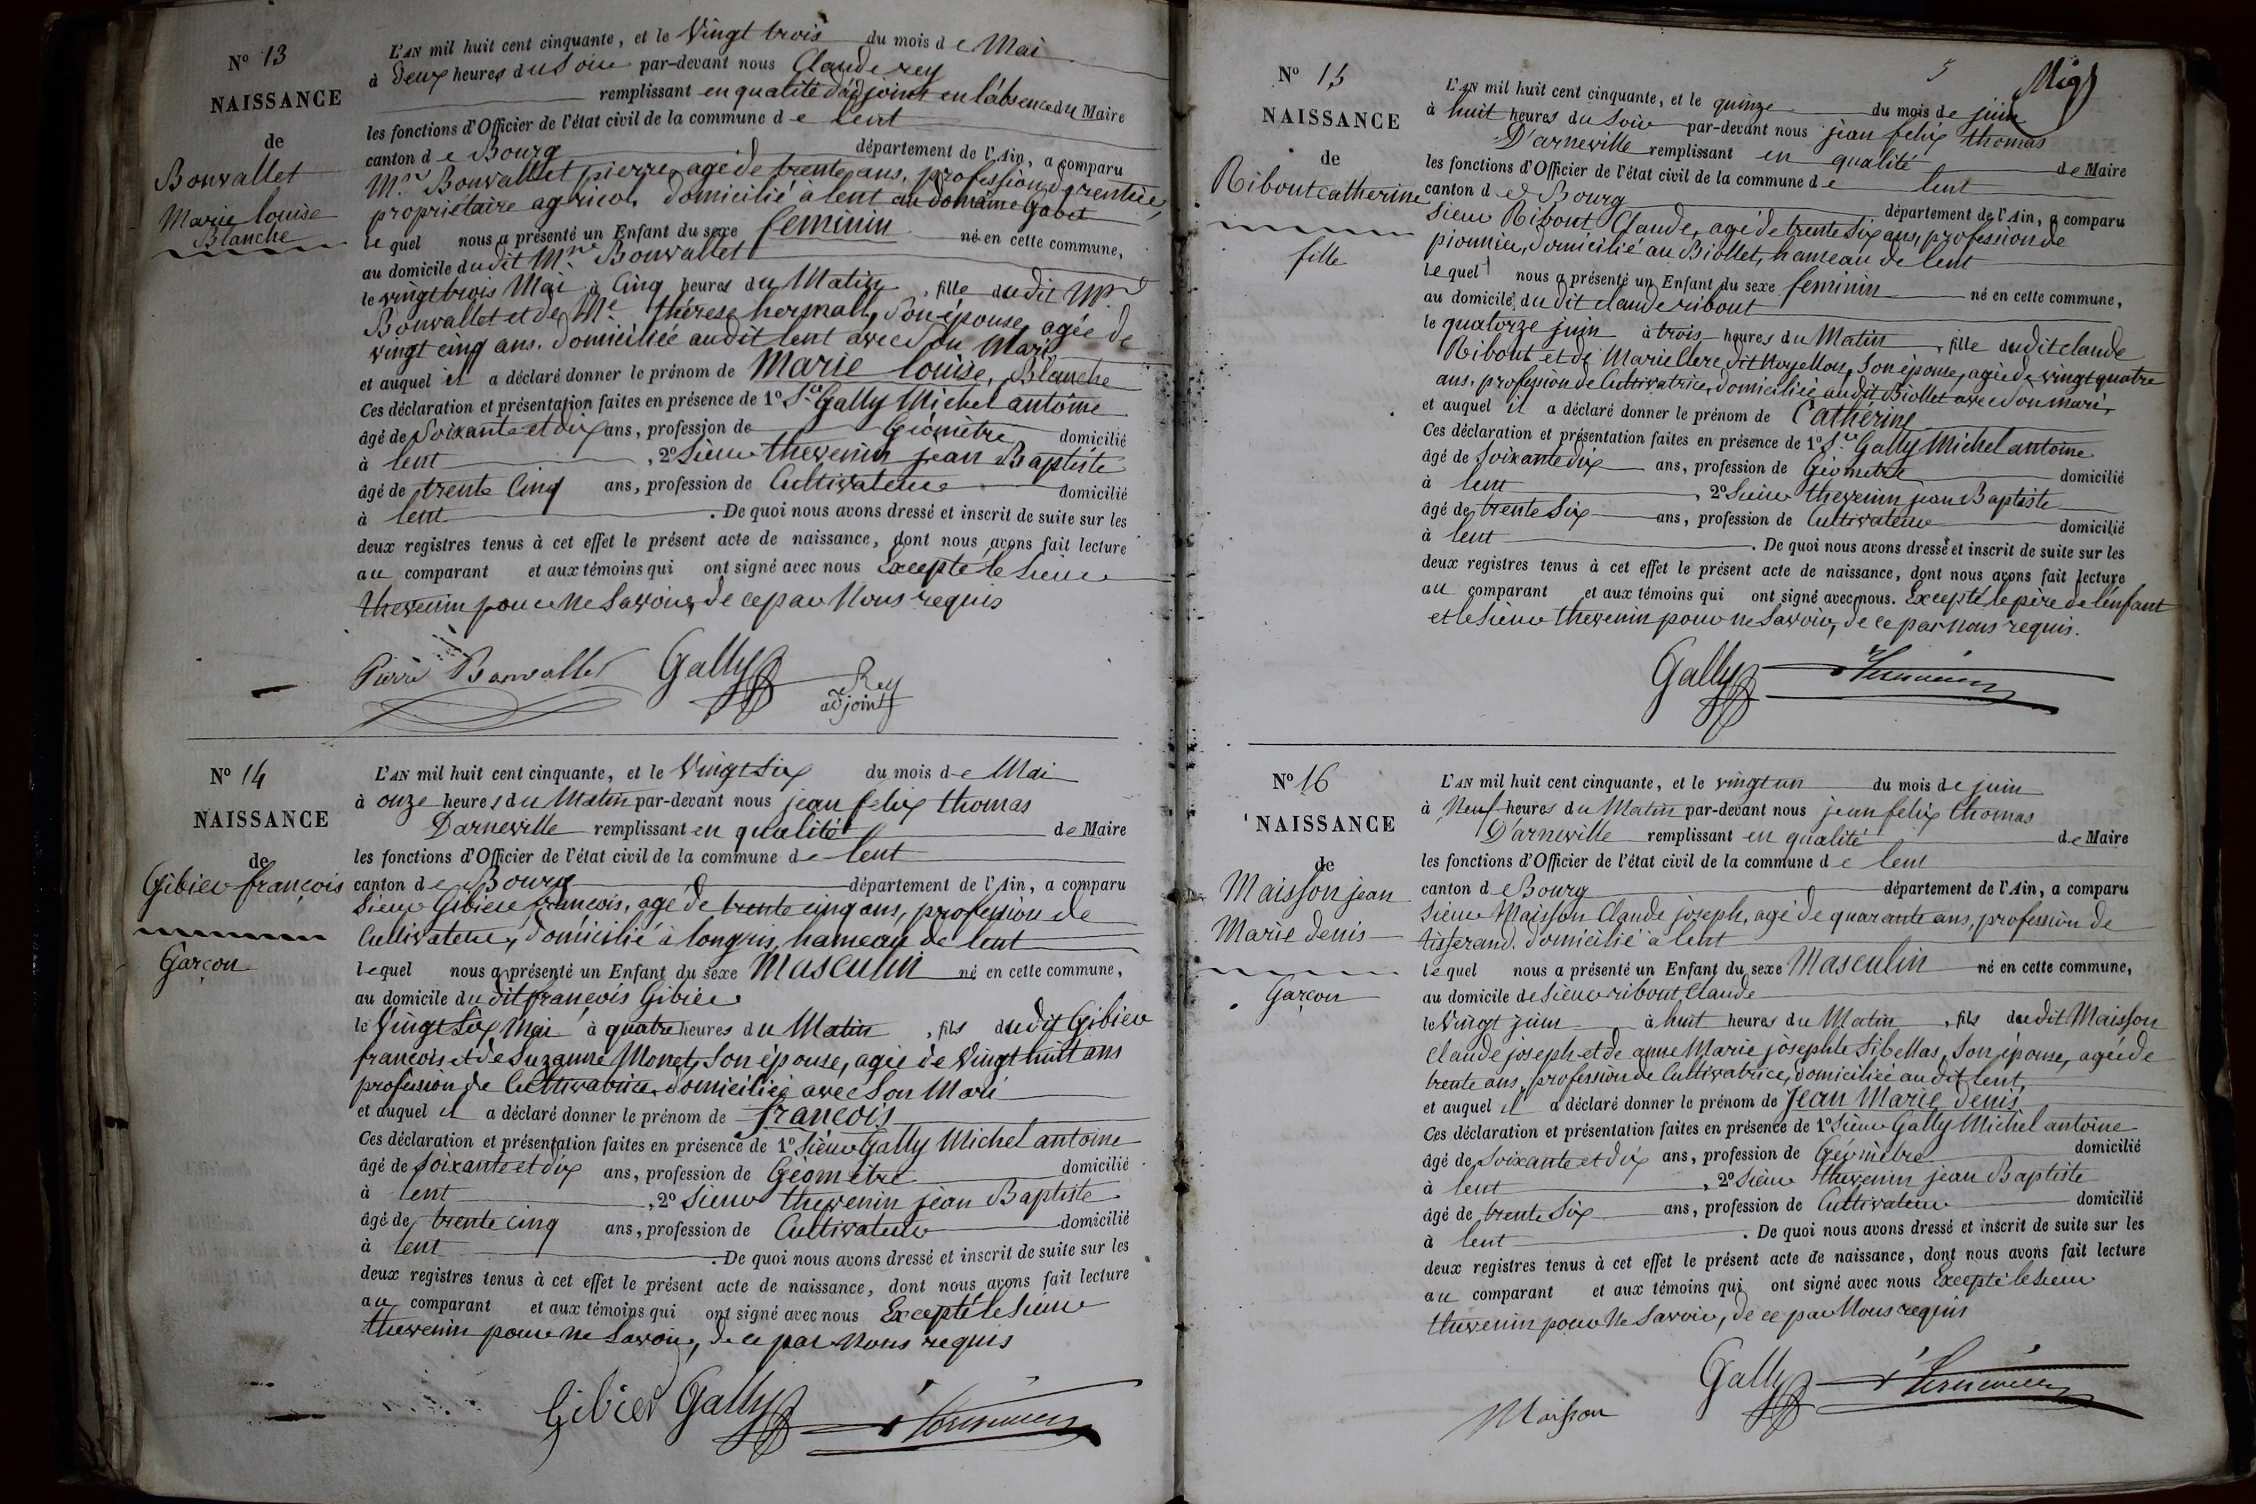 N° 13
NAISSANCE
de
Bonvallet
Marie louise
Blanche
L'AN mil huit cent cinquante, et le Vingt trois du mois de Mai
à Deux heures du Soir par-devant nous Claude rey
remplissant en qualité d'adjoint en l'absence du Maire
les fonctions d'Officier de l'état civil de la commune de lent
canton de Bourg département de l'Ain, a comparu
Mr Bonvallet pierre, agé de trente ans, profession de rentier,
propriétaire agricol, domicilié à lent au domaine Gabet
lequel nous a présenté un Enfant du sexe feminin né en cette commune,
au domicile dudit Mr Bonvallet
le vingt trois Mai à Cinq heures du Matin, fille dudit Mr
Bonvallet et de Me thérese hermall, Son épouse, agée de
vingt cinq ans. domiciliée audit lent avec Son Mari
et auquel il a déclaré donner le prénom de Marie louise, Blanche
Ces déclaration et présentation faites en présence de 1° Sr Gally Michel antoine
âgé de Soixante et dix ans, profession de Géomètre domicilié
à lent, 2° Sieur thevenin jean Baptiste
âgé de trente Cinq ans, profession de Cultivateur domicilié
à lent. De quoi nous avons dressé et inscrit de suite sur les
deux registres tenus à cet effet le présent acte de naissance, dont nous avons fait lecture
au comparant et aux témoins qui ont signé avec nous Excepté le Sieur
thevenin pour ne Savoir, de ce par Nous requis
Pierre Bonvallet Gally Rey
adjoint
N° 14
NAISSANCE
de
Gibier françois
Garçon
L'AN mil huit cent cinquante, et le Vingt Six du mois de Mai
à onze heures du Matin par-devant nous jean felix thomas
D'arneville remplissant en qualité de Maire
les fonctions d'Officier de l'état civil de la commune de lent
canton de Bourg département de l'Ain, a comparu
Sieur Gibier françois, agé de trente cinq ans, profession de
Cultivateur, domicilié à longris, hameau de lent
lequel nous a présenté un Enfant du sexe Masculin né en cette commune,
au domicile dudit françois Gibier
le Vingt Six Mai à quatre heures du Matin, fils dudit Gibier
françois et de Suzanne Monet, Son épouse, agée de Vingt huit ans
profession de Cultivatrice, domiciliée avec Son Mari
et auquel il a déclaré donner le prénom de françois
Ces déclaration et présentation faites en présence de 1° Sieur Gally Michel antoine
âgé de Soixante et dix ans, profession de Géomètre domicilié
à lent, 2° Sieur thevenin jean Baptiste
âgé de trente cinq ans, profession de Cultivateur domicilié
à lent. De quoi nous avons dressé et inscrit de suite sur les
deux registres tenus à cet effet le présent acte de naissance, dont nous avons fait lecture
au comparant et aux témoins qui ont signé avec nous Excepté le Sieur
thevenin pour ne Savoir, de ce par Nous requis
Gibier Gally
N° 15
NAISSANCE
de
Ribout catherine
fille
L'AN mil huit cent cinquante, et le quinze du mois de juin
à huit heures du Soir par-devant nous jean felix thomas
D'arneville remplissant en qualité de Maire
les fonctions d'Officier de l'état civil de la commune de lent
canton de Bourg département de l'Ain, a comparu
Sieur Ribout Claude, agé de trente Six ans, profession de
pionnier, domicilié au Biollet, hameau de lent
lequel nous a présenté un Enfant du sexe feminin né en cette commune,
au domicile du dit claude ribout
le quatorze juin à trois heures du Matin, fille dudit claude
Ribout et de Marie Clerc dit Noyellon, Son épouse, agée de vingt quatre
ans, profession de Cultivatrice, domiciliée audit Biollet avec Son mari,
et auquel il a déclaré donner le prénom de Cathérine
Ces déclaration et présentation faites en présence de 1° Sr Gally Michel antoine
âgé de Soixante dix ans, profession de Géomètre domicilié
à lent, 2° Sieur thevenin jean Baptiste
âgé de trente Six ans, profession de Cultivateur domicilié
à lent. De quoi nous avons dressé et inscrit de suite sur les
deux registres tenus à cet effet le présent acte de naissance, dont nous avons fait lecture
au comparant et aux témoins qui ont signé avec nous. Excepté le père de l'enfant
et le Sieur thevenin pour ne Savoir, de ce par nous requis.
Gally
N° 16
NAISSANCE
de
Maisson jean
Marie denis
Garçon
L'AN mil huit cent cinquante, et le vingt un du mois de juin
à Neuf heures du Matin par-devant nous jean felix thomas
D'arneville remplissant en qualité de Maire
les fonctions d'Officier de l'état civil de la commune de lent
canton de Bourg département de l'Ain, a comparu
Sieur Maisson Claude joseph, agé de quarante ans, profession de
tisserand. domicilié à lent
lequel nous a présenté un Enfant du sexe Masculin né en cette commune,
au domicile de Sieur ribout Claude
le Vingt juin à huit heures du Matin, fils dudit Maisson
claude joseph et de anne Marie josephte Sibellas, Son épouse, agée de
trente ans, profession de Cultivatrice, domiciliée audit lent,
et auquel il a déclaré donner le prénom de Jean Marie denis
Ces déclaration et présentation faites en présence de 1° Sieur Gally Michel antoine
âgé de Soixante et dix ans, profession de Géomètre domicilié
à lent, 2° Sieur thevenin jean Baptiste
âgé de trente Six ans, profession de Cultivateur domicilié
à lent. De quoi nous avons dressé et inscrit de suite sur les
deux registres tenus à cet effet le présent acte de naissance, dont nous avons fait lecture
au comparant et aux témoins qui ont signé avec nous Excepté le Sieur
thevenin pour Ne Savoir, de ce par Nous requis
Maisson Gally